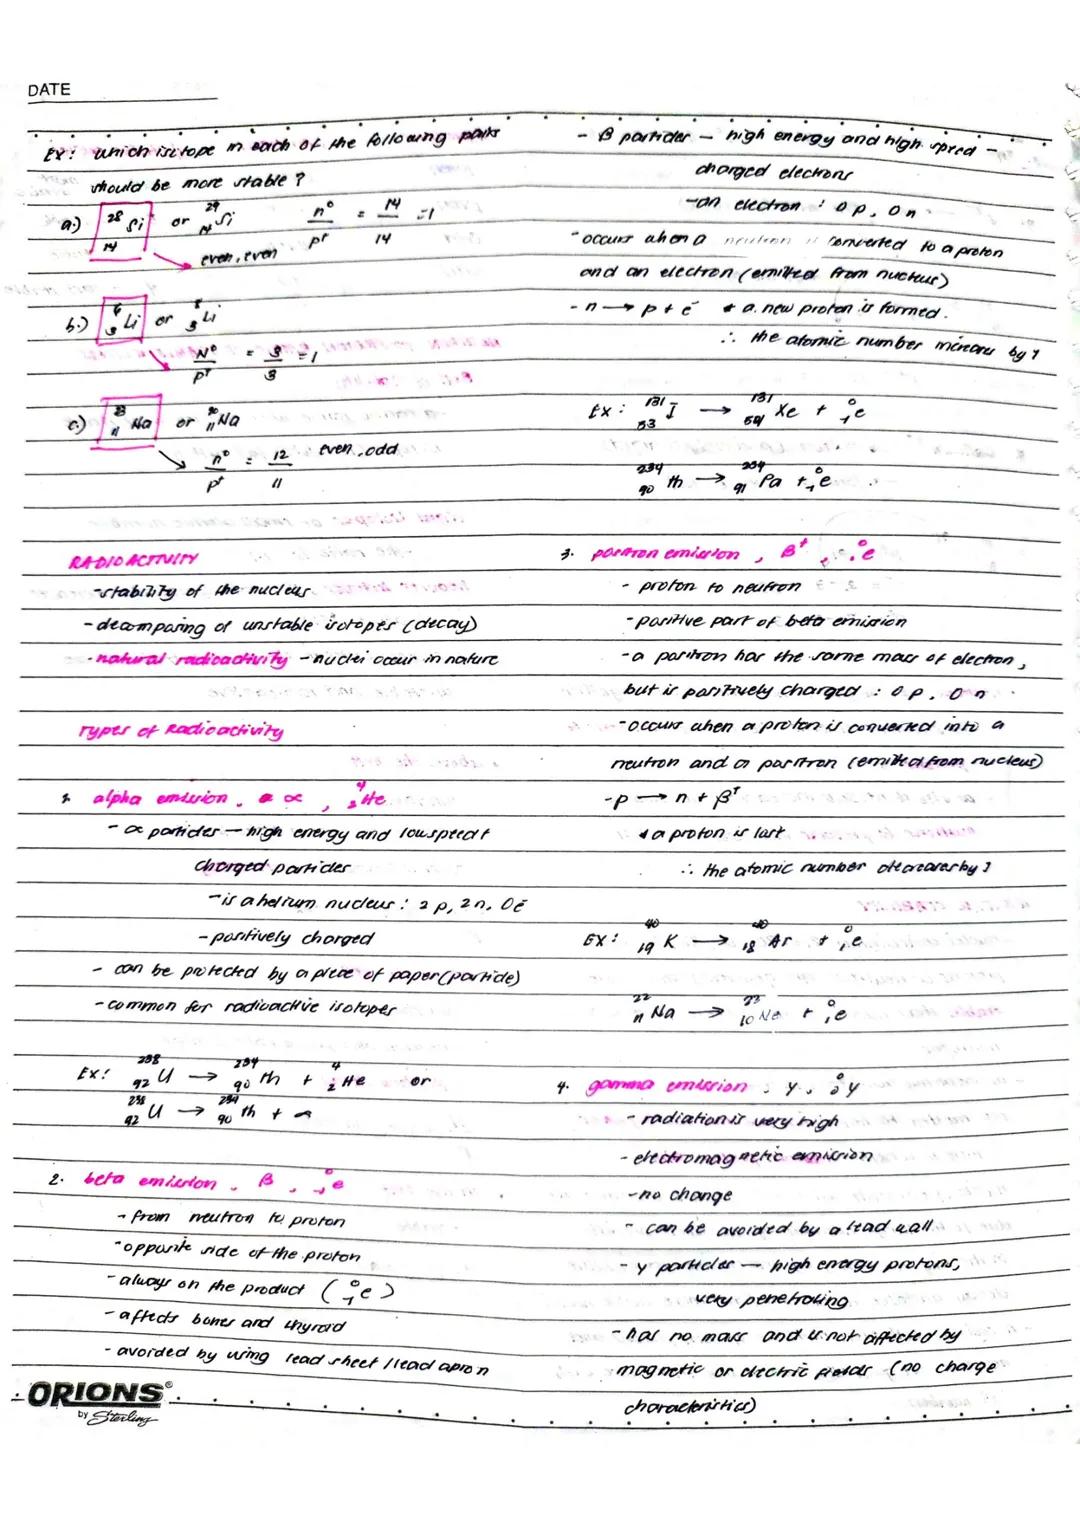 DATE
Ex: which isotope in each of the following pairs
should be more stable?
a.) ²⁸₁₄Si or ²⁹₁₄Si n°/p⁺ = 14/14 = 1
even, even
b.) ⁶₃Li or ⁸₃Li
N°/p⁺ = 3/3 = 1
c.) ²³₁₁Na or ²⁰₁₁Na
n°/p⁺ = 12/11 even, odd
RADIOACTIVITY
-stability of the nucleus
-decomposing of unstable isotopes (decay)
-natural radioactivity - nuclei occur in nature
Types of Radioactivity
1. alpha emission, α, ⁴₂He
- α particles - high energy and low speed +
charged particles
-is a helium nucleus: 2p, 2n, 0ē
-positively charged
- can be protected by a piece of paper (particle)
-common for radioactive isotopes
Ex: ²³⁸₉₂U → ²³⁴₉₀th + ⁴₂He or
²³⁸₉₂U → ²³⁴₉₀th + α
2. beta emission, β, ⁰₋₁e
- from neutron to proton
-opposite side of the proton
-always on the product (⁰₋₁e)
-affects bones and thyroid
-avoided by using lead sheet / lead apron
ORIONS®
by Sterling
- β particles - high energy and high speed -
charged electrons
-an electron : 0p, 0n
-occurs when a neutron is converted to a proton
and an electron (emitted from nucleus)
-n → p + ē * a new proton is formed.
∴ the atomic number increases by 1
Ex: ¹³¹₅₃I → ¹³¹₅₄Xe + ⁰₋₁e
²³⁴₉₀th → ²³⁴₉₁Pa + ⁰₋₁e
3. positron emission, β⁺, ⁰₊₁e
- proton to neutron
-positive part of beta emission
-a positron has the same mass of electron,
but is positively charged : 0p, 0n
-occurs when a proton is converted into a
neutron and a positron (emitted from nucleus)
-p → n + β⁺
* a proton is lost
∴ the atomic number decreases by 1
EX: ⁴⁰₁₉K → ⁴⁰₁₈Ar + ⁰₁e
²²₁₁Na → ²²₁₀Ne + ⁰₁e
4. gamma emission, γ, ⁰₀γ
- radiation is very high
-electromagnetic emission
-no change
- can be avoided by a lead wall
- γ particles - high energy protons,
very penetrating
-has no mass and is not affected by
magnetic or electric fields (no charge
characteristics)